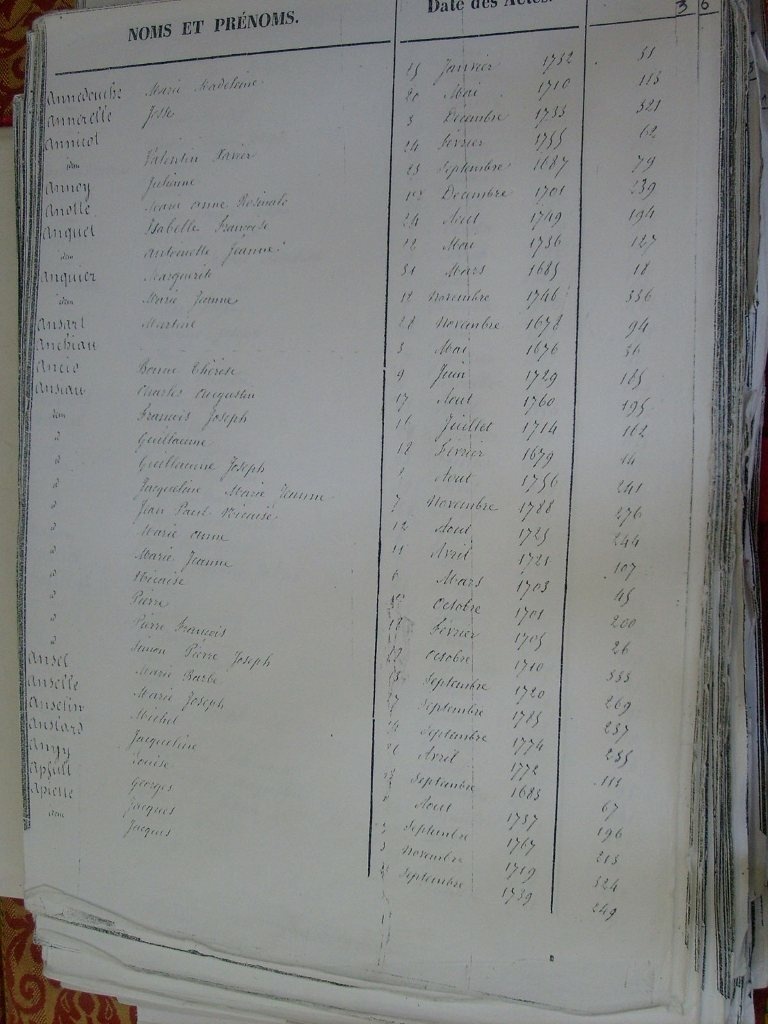 NOMS ET PRÉNOMS. Date des Actes. 36
Annedouche Marie Madeleine 15 Janvier 1732 51
Annerelle Josse 20 Mai 1710 113
Annicot 3 Décembre 1733 321
idem Valentin Xavier 24 février 1755 62
Annoy Julienne 25 Septembre 1687 79
Anotte Marie Anne 1er Décembre 1701 239
Anquet Isabelle Francoise 24 Aout 1749 194
idem Antoinette Jeanne 12 Mai 1736 127
Anquier Marguerite 31 Mars 1685 18
idem Marie Jeanne 18 Novembre 1746 336
Ansart Martine 28 Novembre 1678 94
Anchiau 3 Mai 1676 36
Ancio Bonne Thérèse 9 Juin 1729 185
Ansiau Charles Augustin 17 Aout 1760 195
idem Francois Joseph 16 Juillet 1714 162
d Guillaume 12 Février 1679 14
d Guillaume Joseph Aout 1756 241
d Jacqueline Marie Jeanne 7 Novembre 1788 276
d Jean Paul Nicaise 12 Aout 1725 244
d Marie Anne 11 Avril 1721 107
d Marie Jeanne 6 Mars 1703 45
d Nicaise Octobre 1701 200
d Pierre 12 Février 1705 26
d Pierre Francois 22 Octobre 1710 333
d Simon Pierre Joseph Septembre 1720 269
Ansel Marie Barbe 27 Septembre 1785 237
Anselle Marie Joseph Septembre 1774 235
Anselin Michel Avril 1772 111
Anstard Jacqueline Septembre 1683 67
Louise Aout 1737 196
Apfull Georges Septembre 1767 213
Apielle Jacques 3 Novembre 1719 324
idem Jacques Septembre 1739 249